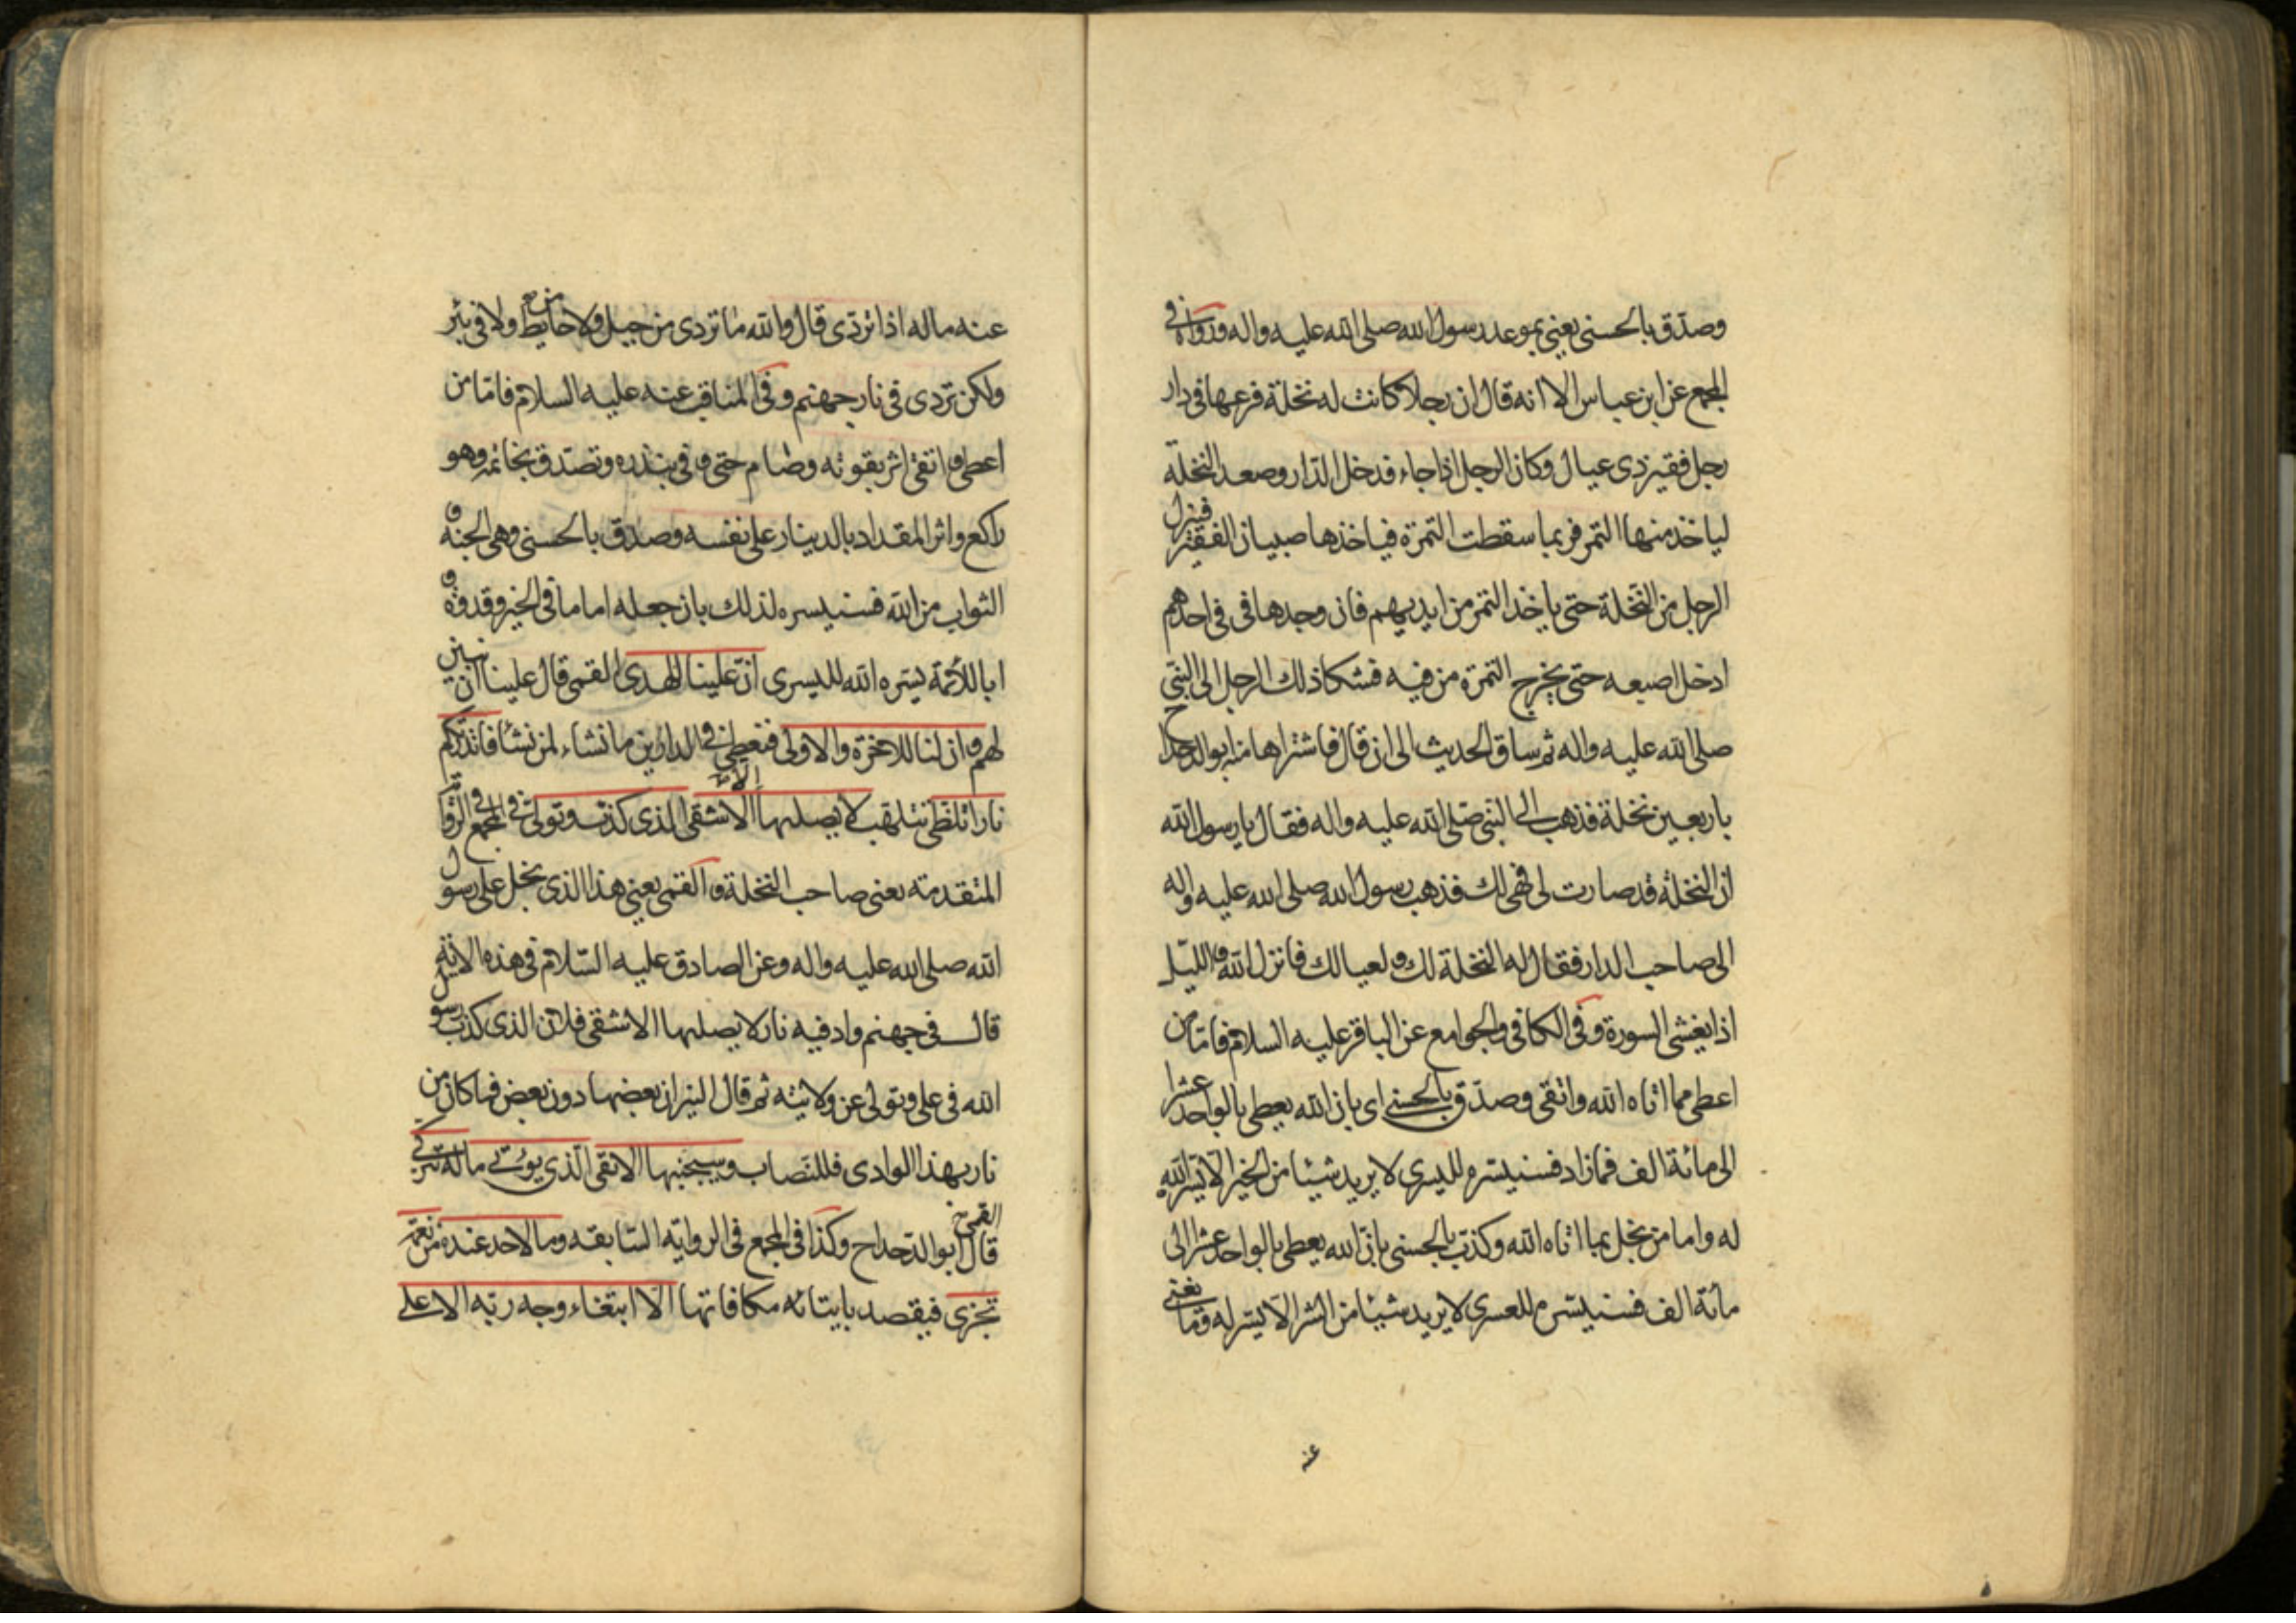 وصدّق بالحسنى يعنى بموعد رسول الله صلى الله عليه واله وزواه فى
المجمع عن ابن عباس الا انه قال ان رجلا كانت له نخلة فرعها فى دار
رجل فقير ذى عيال وكان الرجل اذا جاء فدخل الدار وصعد النخلة
لياخذ منها التمر فربما سقطت التمرة فياخذها صبيان الفقير فينزل
الرجل من النخلة حتى ياخذ التمر من ايديهم فان وجدها فى فى احدهم
ادخل اصبعه حتى يخرج التمرة من فيه فشكا ذلك الرجل الى النبى
صلى الله عليه واله ثم ساق الحديث الى ان قال فاشتراها منه ابو الدحداح
باربعين نخلة فذهب الى النبى صلى الله عليه واله فقال يا رسول الله
ان النخلة قد صارت لى فهى لك فذهب رسول الله صلى الله عليه واله
الى صاحب الدار فقال له النخلة لك ولعيالك فانزل الله والليل
اذا يغشى السورة وفى الكافى والجوامع عن الباقر عليه السلام فاما من
اعطى مما اتاه الله واتقى وصدّق بالحسنى اى بان الله يعطى بالواحد عشرا
الى مائة الف فمازاد فسنيسّره لليسرى لا يريد شيئا من الخير الا يسّر الله
له واما من بخل بما اتاه الله وكذب بالحسنى بان الله يعطى بالواحد عشرا الى
مائة الف فسنيسّره للعسرى لا يريد شيئا من الشر الا يسّر له وما يغنى
عنه
عنه ماله اذا تردّى قال والله ما تردى من جبل ولا من حايط ولا فى بئر
ولكن تردى فى نار جهنم وفى المناقب عنه عليه السلام فاما من
اعطى واتقى اثر بقوته وصام حتى وفى بنذره وتصدق بخاتمه وهو
راكع واثر المقداد بالدينار على نفسه وصدّق بالحسنى وهى الجنة و
الثواب من الله فسنيسره لذلك بان جعله اماما فى الخير وقدوة و
ابا للأئمة يسّره الله لليسرى انّ علينا للهدى القمى قال علينا ان نبين
لهم وان لنا للاخرة والاولى فنعطى فى الدارين ما نشاء لمن نشا فانذرتكم
نارا تلظى تتلهب لا يصليها الا الاشقى الذى كذب وتولى فى المجمع فى الرواية
المتقدمته يعنى صاحب النخلة والقمى يعنى هذا الذى بخل على رسول
الله صلى الله عليه واله وعن الصادق عليه السلام فى هذه الاية
قال فى جهنم واد فيه نار لا يصليها الا الاشقى فلان الذى كذب رسول
الله فى على وتولى عن ولايته ثم قال النيران بعضها دون بعض فما كان من
نار بهذا الوادى فللنصاب وسيجنبها الاتقى الّذى يوتى ماله يتزكى
القمى قال ابو الدحداح وكذا فى المجمع فى الرواية السابقه وما لاحد عنده من نعمة
تجزى فيقصد بايتائه مكافاتها الّا ابتغاء وجه ربه الاعلى